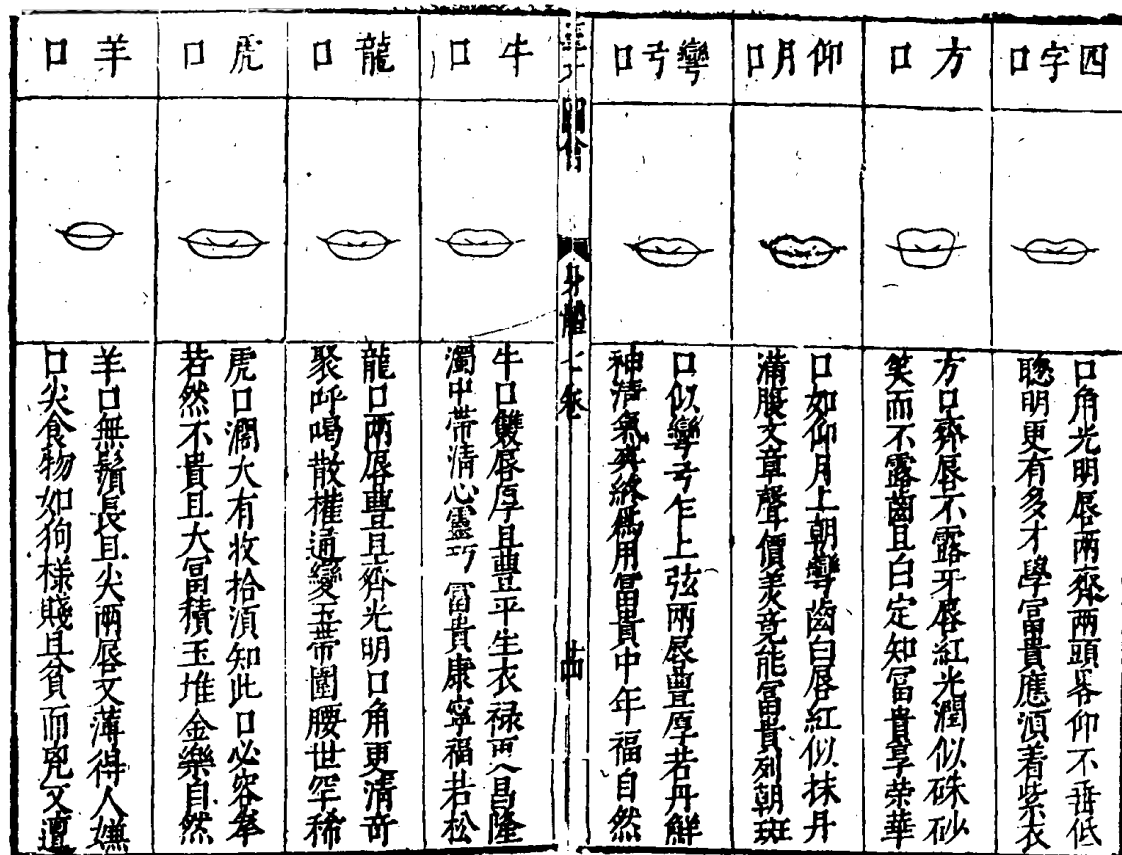 四字口
口角光明唇兩齊兩頭畧仰不垂低
聰明更有多才學富貴應湏着紫衣
方口
方口齊唇不露牙唇紅光潤似硃砂
笑而不露齒且白定知富貴享荣華
仰月口
口如仰月上朝彎齒白唇紅似抹丹
滿腹文章聲價美竟能富貴列朝班
彎弓口
口似彎弓乍上弦兩唇豊厚若丹鮮
神清氣爽終為用富貴中年福自然
三才圖會
身體七卷
十四
牛口
牛口雙唇厚且豊平生衣禄更昌隆
濁中帶清心靈巧富貴康寧福若松
龍口
龍口兩唇豊且齊光明口角更清竒
聚呼喝散權通變玉帶圍腰世罕稀
虎口
虎口濶大有收拾湏知此口必容拳
若然不貴且大富積玉堆金樂自然
羊口
羊口無鬚長且尖兩唇又薄得人嫌
口尖食物如狗樣賤且貧而兇又遭